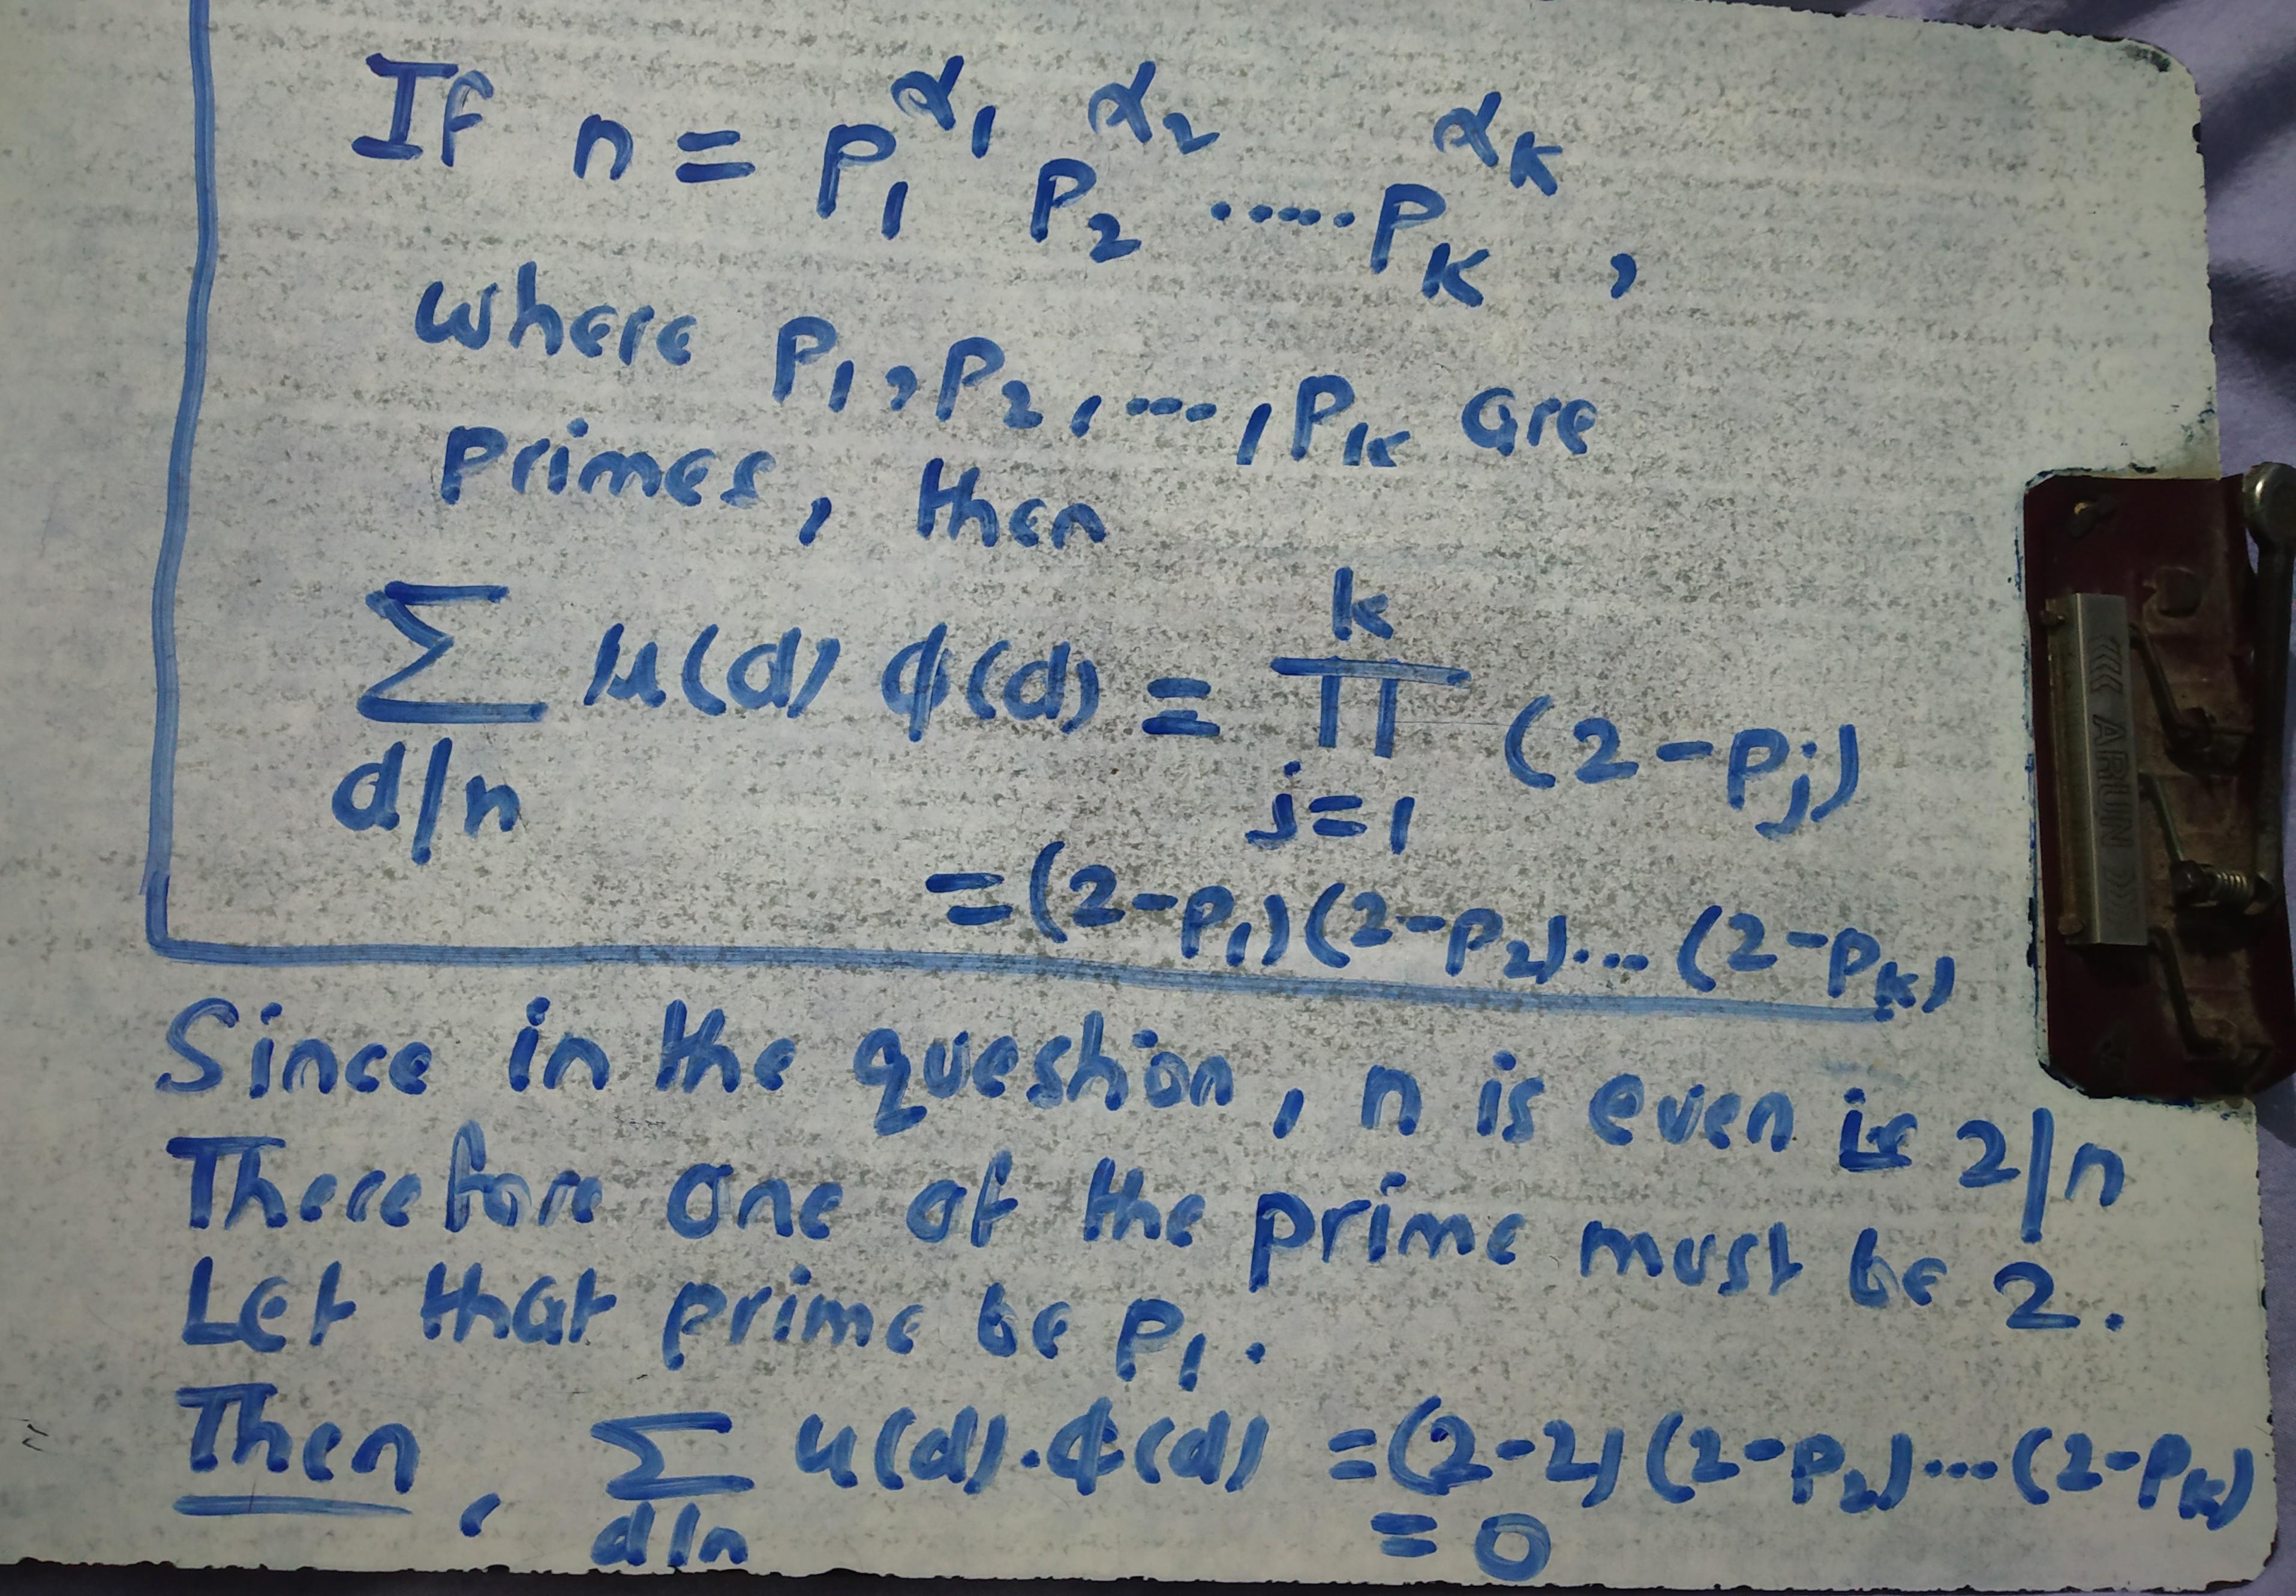 If n = p₁^α₁ p₂^α₂ ..... p_k^α_k ,
where p₁, p₂, ...., p_k are
primes, then
∑_{d/n} μ(d) ϕ(d) = ∏_{j=1}^{k} (2-p_j)
=(2-p₁)(2-p₂)... (2-p_k)
Since in the question, n is even ie 2/n
Therefore one of the prime must be 2.
Let that prime be p₁.
Then, ∑_{d/n} u(d).ϕ(d) =(2-2)(2-p₂)...(2-p_k)
= 0
ARUN